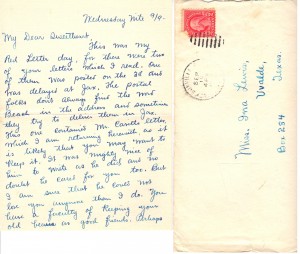 Wednesday Nite 9/4.
My Dear Sweetheart:
This was my
Red Letter day, for there were two
of your letters which I read. One
of them was posted on the 3d and
was delayed at Jax. The postal
folks don't always find the word
Beach in the address and sometimes
they try to deliver them in Jax.
This one contained Mr. letter,
which I am returning herewith as it
is likely that you may want to
keep it. It was mighty nice of
him to write as he did and no
doubt he cares for you too. But
I am sure that he could not
love you anymore than I do. You
have a faculty of keeping your
old beaus as good friends. Perhaps
SEP
Miss. Ina Lewis,
Uvalde,
Texas.
Box 234